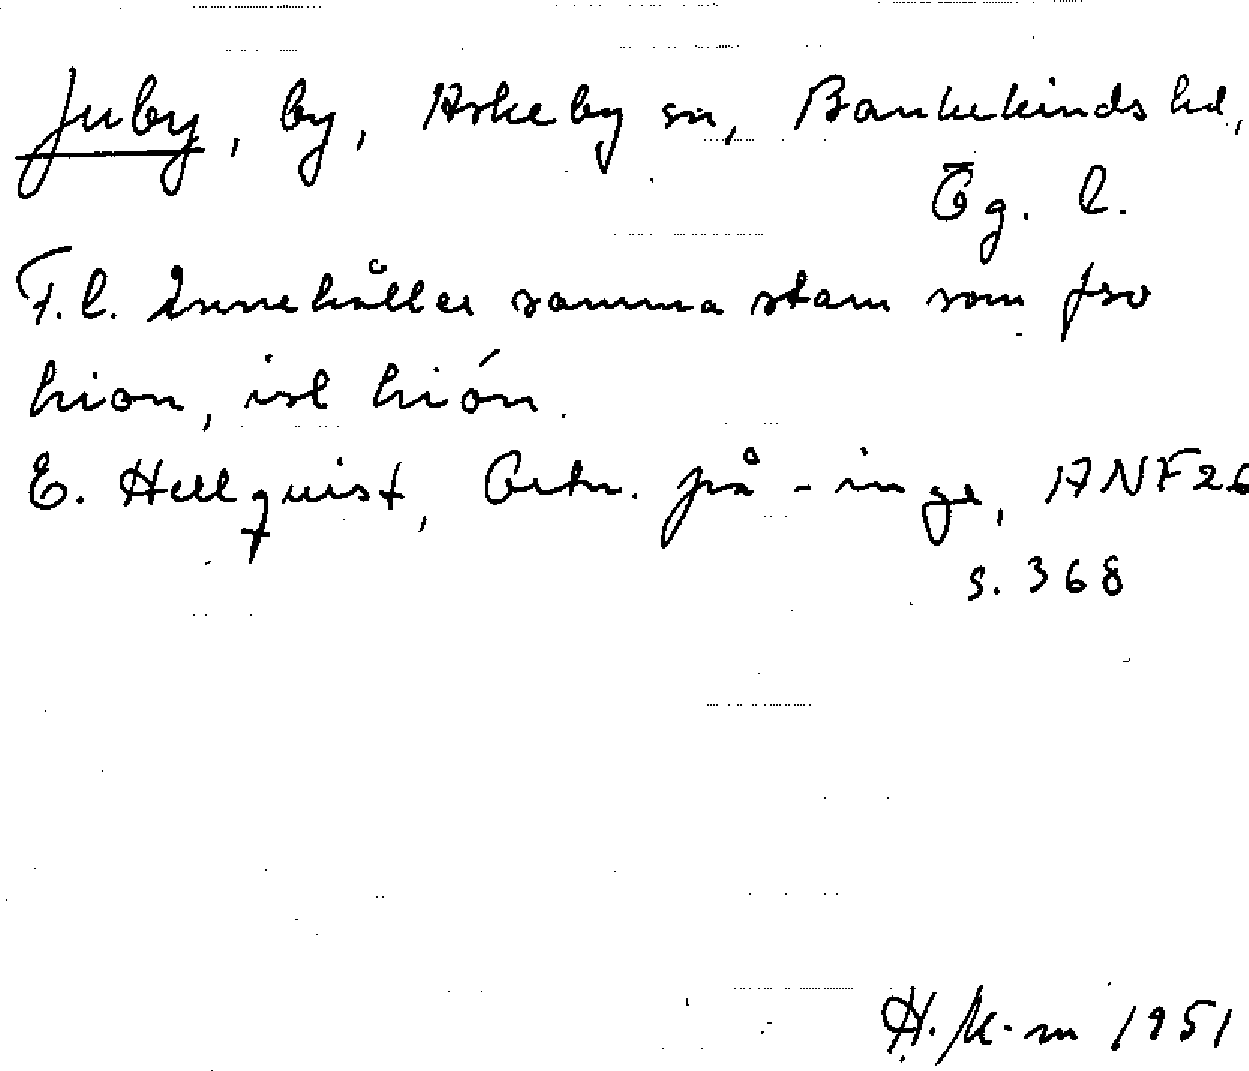 Juby, by, Askeby sn, Bankekinds hd,
Ög. l.
F.l. Innehåller samma stam som fsv
hion, isl hión.
E. Hellquist, Ortn. på -inge, ANF 26
s. 368
H. K-m 1951